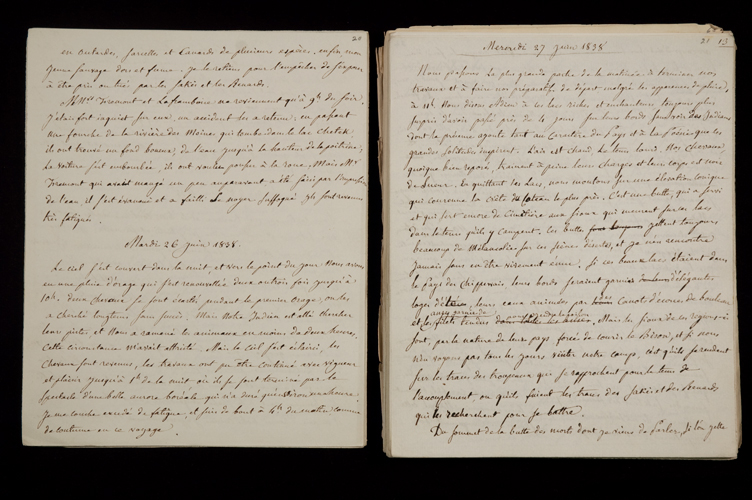 20
en outardes, sarcelles et Canards de plusieurs espèces, enfin mon
jeune sauvage dort et fume. je le retiens pour l'empêcher de s'exposer
à être pris ou tué par les Sakis et les Renards.
M.Mrs Fremont et Laframboise ne reviennent qu'à 9h du soir.
j'étais fort inquiet sur eux, un accident les a retenu, en passant
une fourche de la rivière des Moines qui tombe dans le lac
ils ont trouvé un fond boueux, de l'eau jusqu'à la hauteur de la poitrine,
La voiture s'est embourbée, ils ont voulu pousser à la roue, Mais Mr
Fremont qui avait mangé un peu auparavant a été saisi par
de l'eau il s'est évanoui et a failli se noyer suffoqué. Ils sont revenus
très fatigués.
Mardi 26 Juin 1838.
Le ciel s'est couvert dans la nuit, et vers le point du jour Nous avons
eu une pluie d'orage qui s'est renouvellée deux autres fois jusqu'à
10h. deux chevaux se sont écartés pendant le premier orage, on les
a cherché longtems sans succès. Mais Notre Indien est allé chercher
leur piste, et Nous a ramené les animaux en moins de deux heures.
Cette circonstance m'avait attristé. Mais le ciel s'est éclairci, les
Chevaux sont revenus, les travaux ont pu être continué avec vigueur
et plaisir jusqu'à 1h de la nuit où ils se sont terminés par le
spectacle d'une belle aurore boréale qui n'a duré qu'environ une heure.
je me couche excédé de fatigue, et suis debout à 4h du matin comme
de coutume en ce voyage.
21 13
Mercredi 27 Juin 1838
Nous passons la plus grande partie de la matinée à terminer nos
travaux et à faire nos préparatifs de départ malgré les apparences de pluie,
à 11h Nous disons adieu à ces lacs riches et enchanteurs toujours plus
surpris d'avoir passé près de 4 jours sur leurs bords sans voir des Indiens
dont la présence ajoute tant au Caractère du Pays et à la Poésie que les
grandes solitudes inspirent. L'air est chaud, Le tems lourd, Nos Chevaux
quoique bien reposés, trainent à peine leurs Charges et leurs corps est noir
de sueur. En quittant les Lacs, nous montons sur une élévation conique
qui couronne la crête du Coteau le plus près. C'est une butte, qui a servi
et qui sert encore de Cimetière aux Sioux qui meurent sur ces lacs
dans le tems qu'ils y campent. Ces buttes jettent toujours
beaucoup de Mélancolie sur ces scènes désertes, et je n'en rencontre
jamais sans en être vivement ému. Si ces beaux lacs étaient dans
le Pays des Chippeways, leurs bords seraient garnis d'élégantes
loges d'écorce, leurs eaux animées par des Canots d'écorce de bouleau
et les filets tendus. Mais les Sioux de ces régions-ci
sont, par la nature de leur pays forcé de courir le Bison, et si nous
n'en voyons pas tous les jours visiter notre camp, c'est qu'ils se rendent
sur les traces des troupeaux qui se rapprochent pour le tems de
l'accouplement ou qu'ils fuient les traces des Sakis et des Renards
qui les recherchent pour se battre.
Du sommet de la butte des morts dont je viens de parler, Si l'on jette